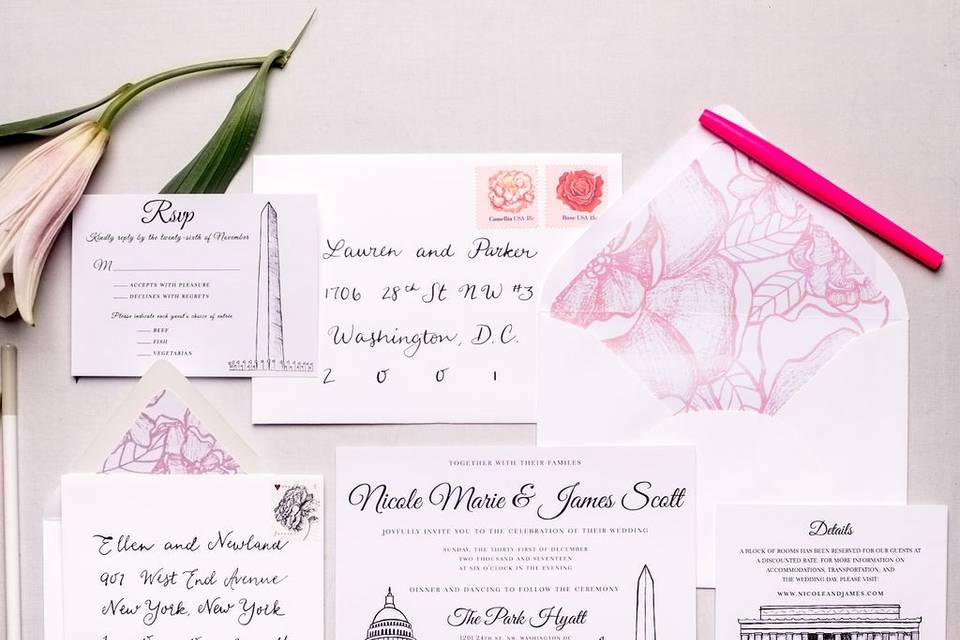 Rsvp
Kindly reply by the twenty-sixth of November
M
ACCEPTS WITH PLEASURE
DECLINES WITH REGRETS
Please indicate each guest's choice of entrée
BEEF
FISH
VEGETARIAN
Camellia USA 18c
Rose USA 18c
Lauren and Parker
1706 28th St NW #3
Washington, D.C.
2 0 0 1
Ellen and Newland
907 West End Avenue
New York, New York
TOGETHER WITH THEIR FAMILES
Nicole Marie & James Scott
JOYFULLY INVITE YOU TO THE CELEBRATION OF THEIR WEDDING
SUNDAY, THE THIRTY-FIRST OF DECEMBER
TWO THOUSAND AND SEVENTEEN
AT SIX O'CLOCK IN THE EVENING
DINNER AND DANCING TO FOLLOW THE CEREMONY
The Park Hyatt
1201 24TH ST. NW, WASHINGTON DC
Details
A BLOCK OF ROOMS HAS BEEN RESERVED FOR OUR GUESTS AT
A DISCOUNTED RATE. FOR MORE INFORMATION ON
ACCOMMODATIONS, TRANSPORTATION, AND
THE WEDDING DAY, PLEASE VISIT:
WWW.NICOLEANDJAMES.COM